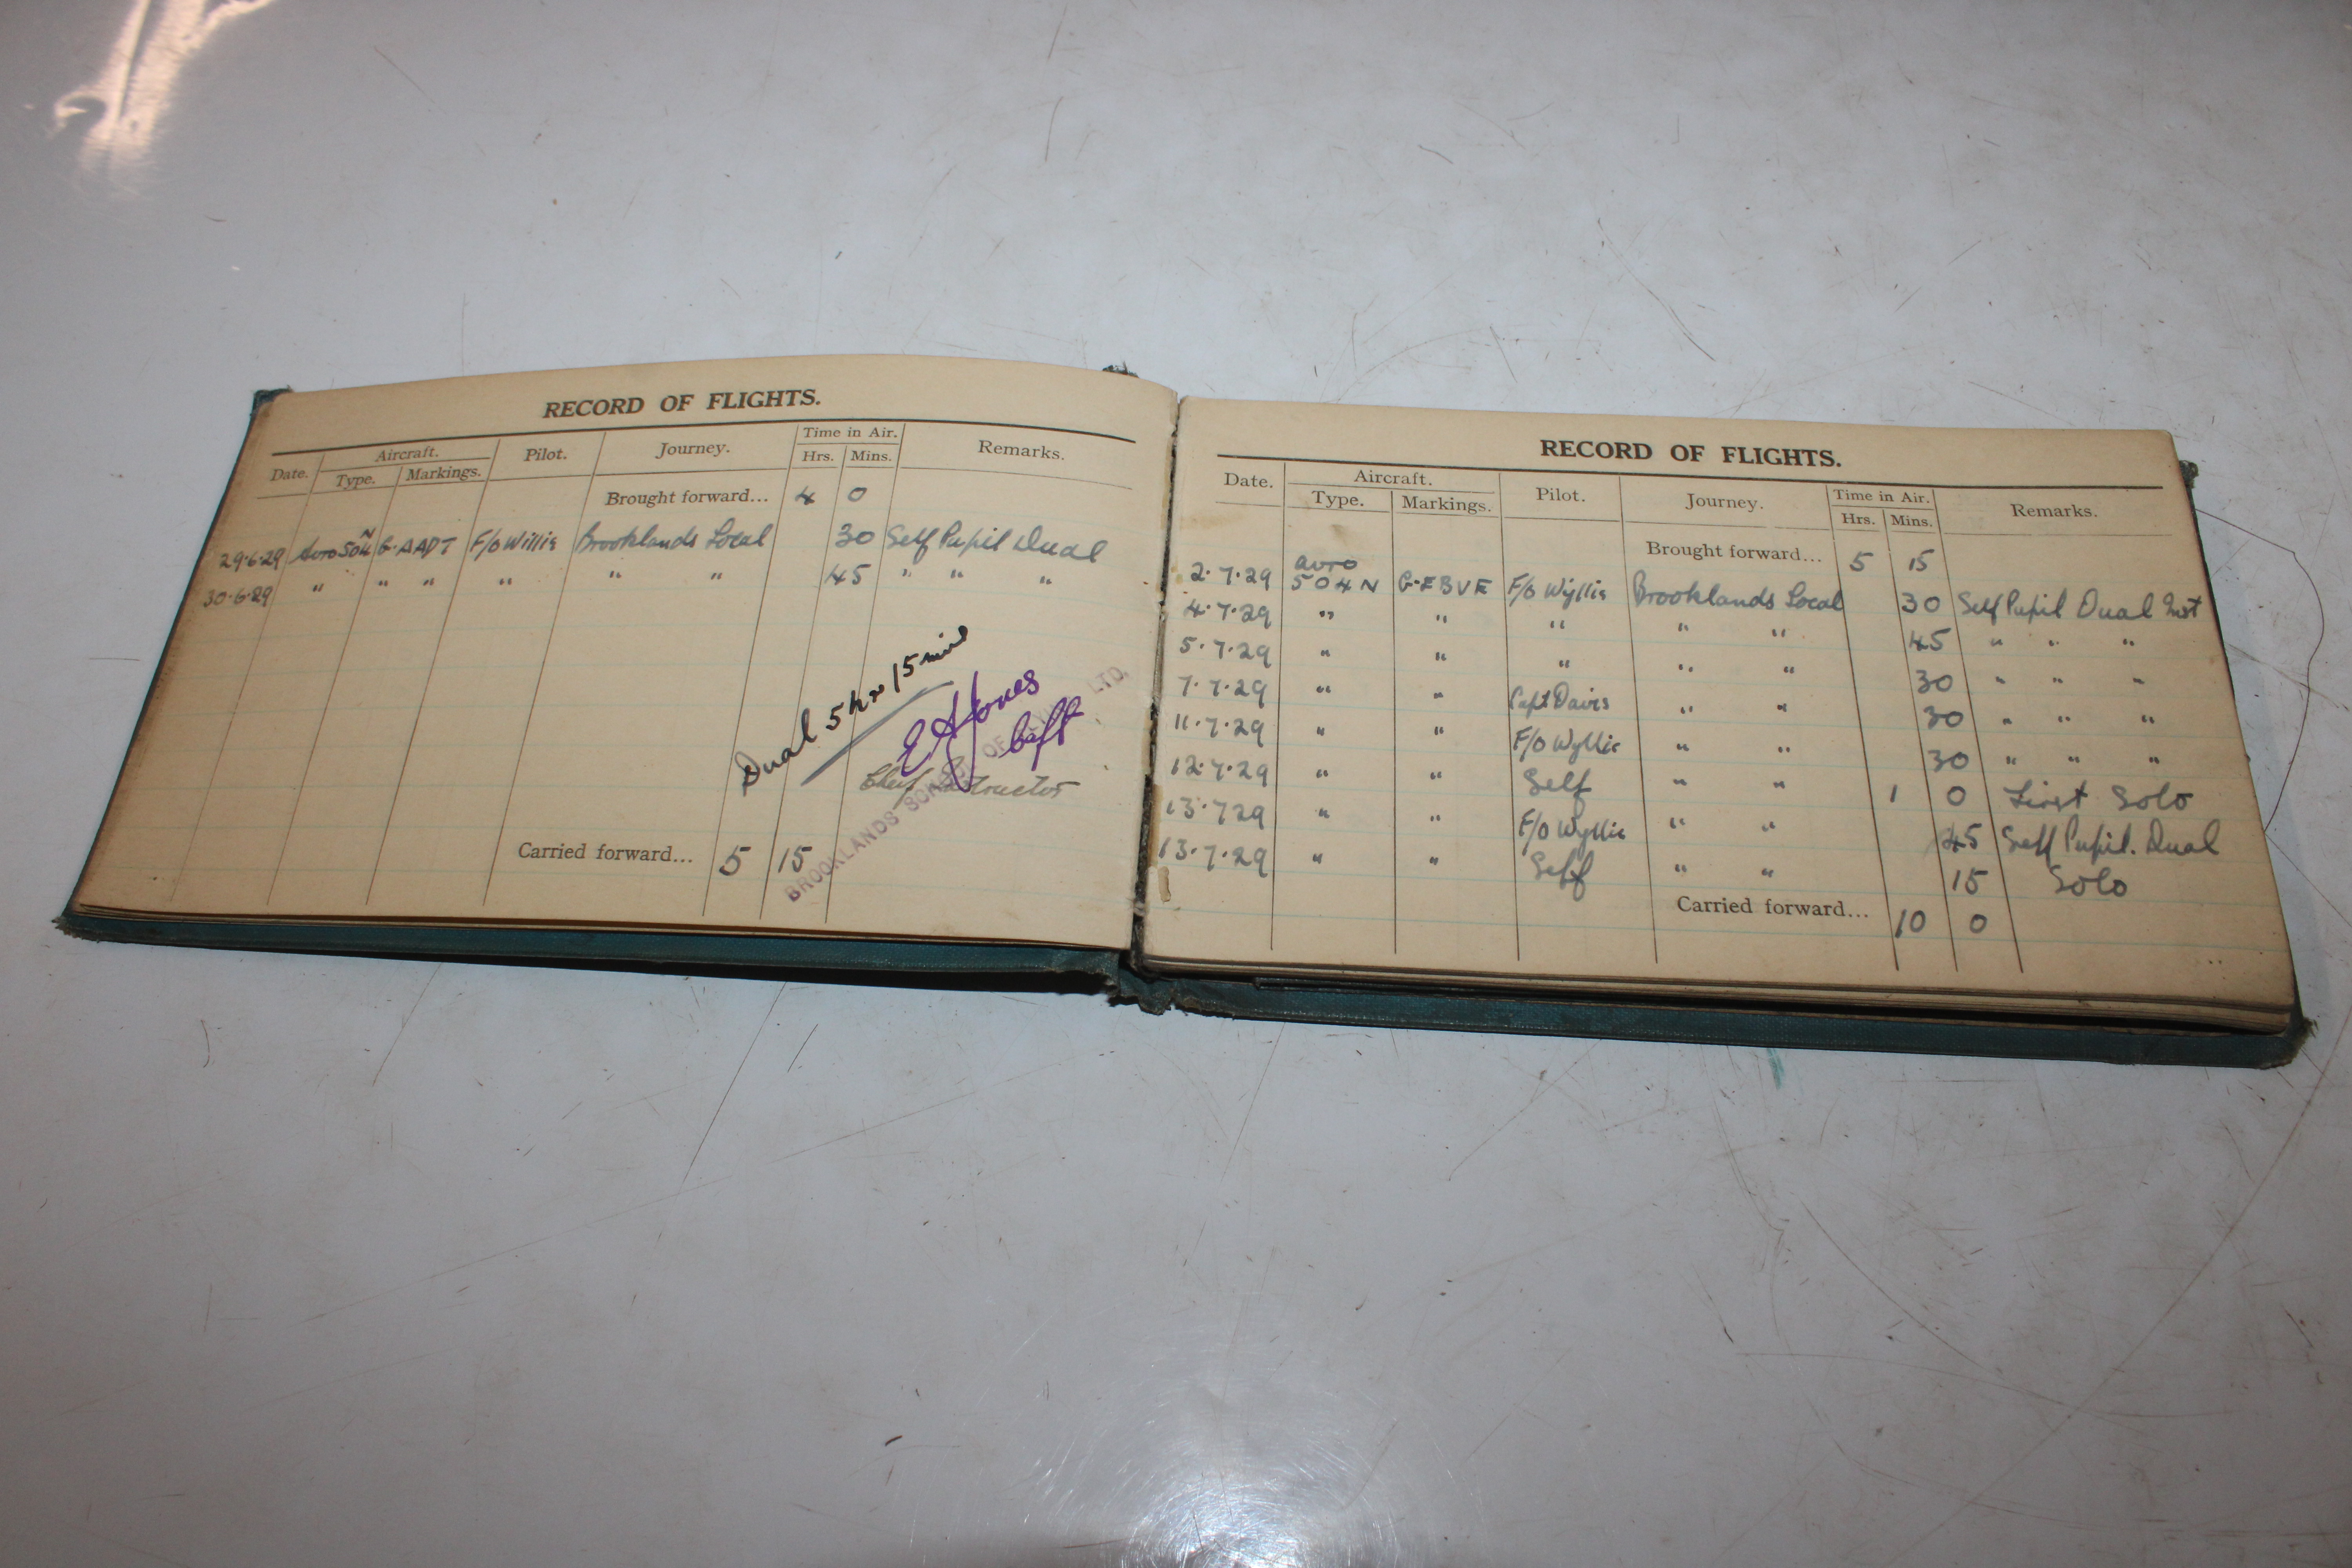 RECORD OF FLIGHTS.
Date. Aircraft. Pilot. Journey. Time in Air. Remarks.
Type. Markings. Hrs. Mins.
Brought forward... 4 0
29·6·29 Avro 504N G·AADT F/o Willie Brooklands Local 30 Self Pupil Dual
30·6·29 " " " " " " 45 " " "
Dual 5 hrs 15 mins
E A Jones
Capt
Chief Instructor
BROOKLANDS SCHOOL OF LTD.
Carried forward... 5 15
RECORD OF FLIGHTS.
Date. Aircraft. Pilot. Journey. Time in Air. Remarks.
Type. Markings. Hrs. Mins.
Brought forward... 5 15
2·7·29 Avro 504N G·EBVE F/o Wyllie Brooklands Local 30 Self Pupil Dual Inst
4·7·29 " " " " " 45 " " "
5·7·29 " " " " " 30 " " "
7·7·29 " " Capt Davis " " 30 " " "
11·7·29 " " F/o Wyllie " " 30 " " "
12·7·29 " " Self " " 1 0 First Solo
13·7·29 " " F/o Wyllie " " 45 Self Pupil. Dual
13·7·29 " " Self " " 15 Solo
Carried forward... 10 0